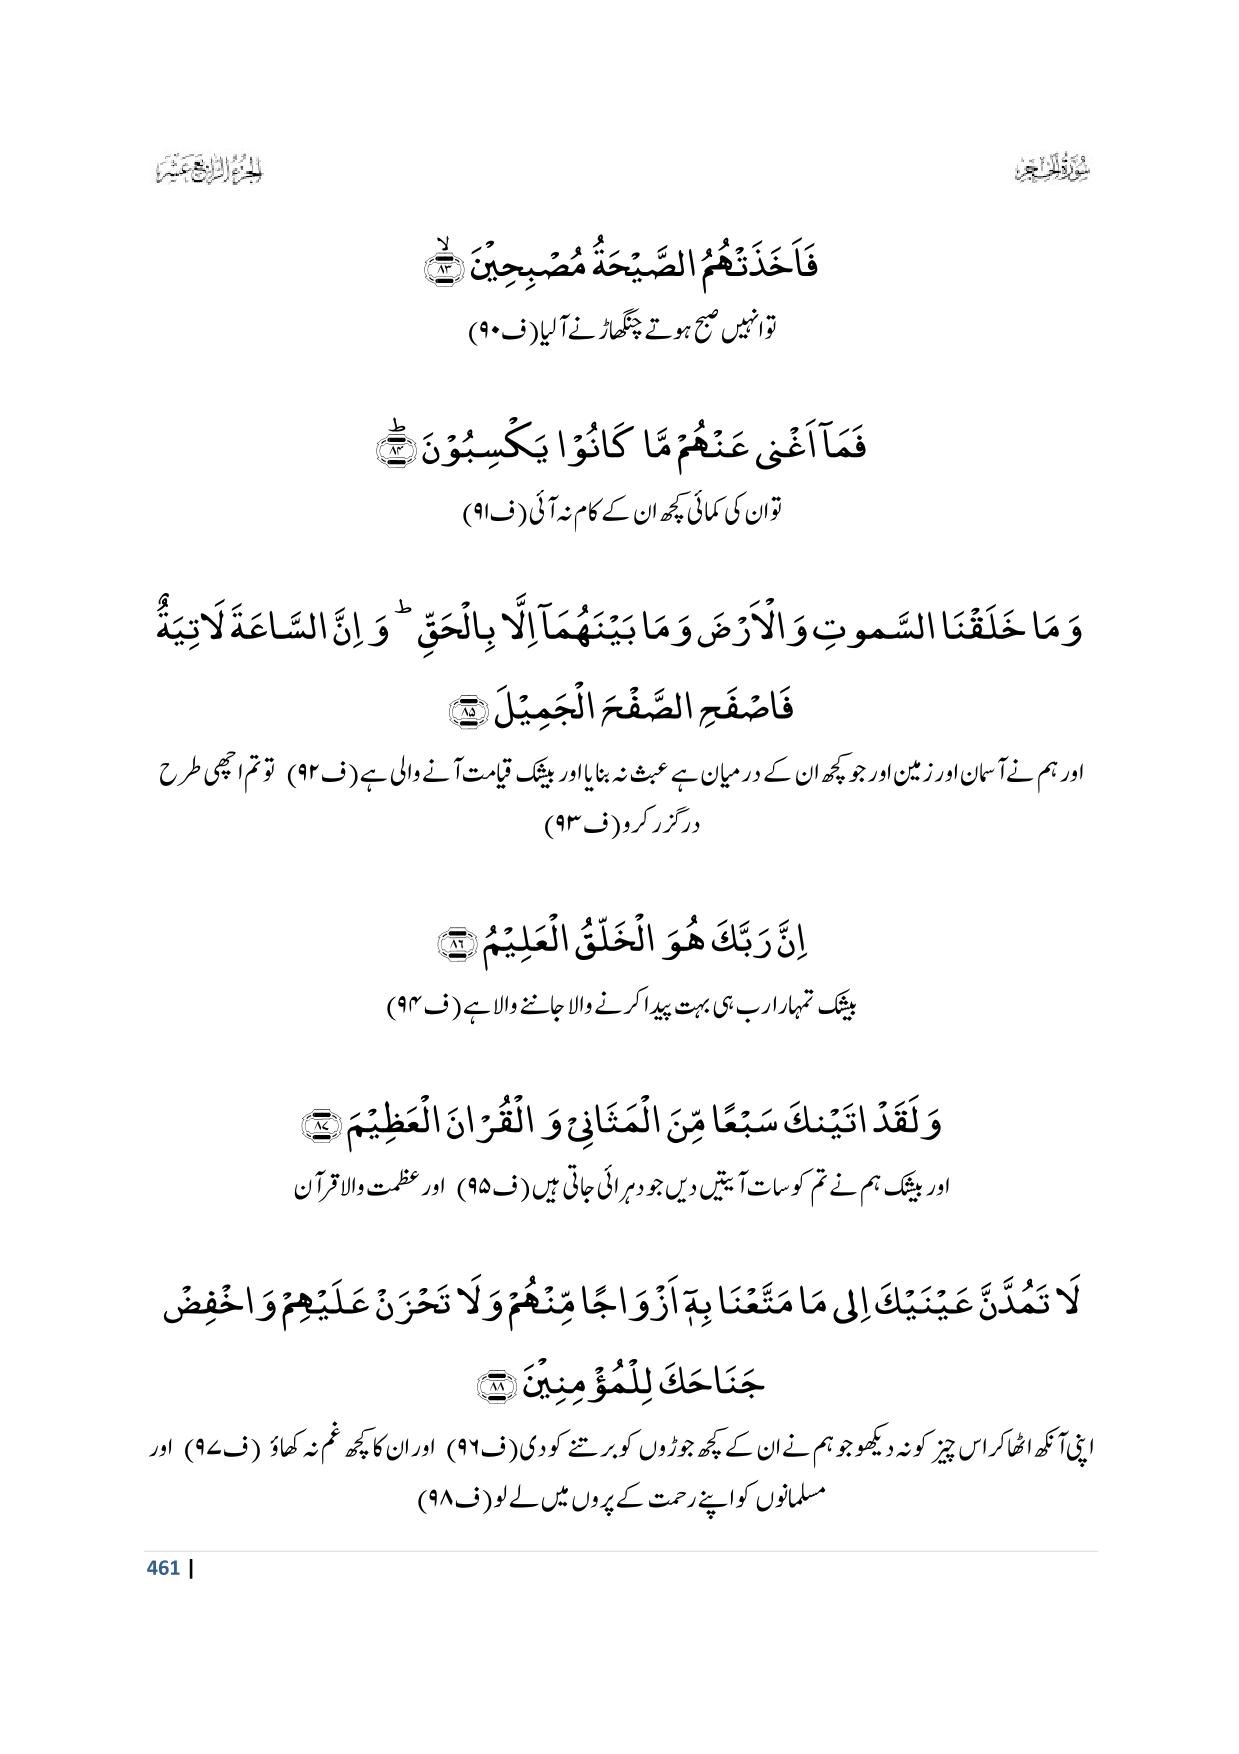 سُوْرَةُ الْحِجْر
الجزء الرابع عشر
فَاَخَذَتْهُمُ الصَّیْحَةُ مُصْبِحِیْنَ ﴿ۙ۸۳﴾
تو انہیں صبح ہوتے چنگھاڑ نے آ لیا (ف۹۰)
فَمَاۤ اَغْنٰی عَنْهُمْ مَّا کَانُوْا یَکْسِبُوْنَ ﴿ؕ۸۴﴾
تو ان کی کمائی کچھ ان کے کام نہ آئی (ف۹۱)
وَ مَا خَلَقْنَا السَّموتِ وَ الْاَرْضَ وَ مَا بَیْنَهُمَاۤ اِلَّا بِالْحَقِّ ؕ وَ اِنَّ السَّاعَةَ لَاتِیَةٌ
فَاصْفَحِ الصَّفْحَ الْجَمِیْلَ ﴿۸۵﴾
اور ہم نے آسمان اور زمین اور جو کچھ ان کے درمیان ہے عبث نہ بنایا اور بیشک قیامت آنے والی ہے (ف۹۲) تو تم اچھی طرح
درگزر کرو (ف۹۳)
اِنَّ رَبَّكَ هُوَ الْخَلّٰقُ الْعَلِیْمُ ﴿۸۶﴾
بیشک تمہارا رب ہی بہت پیدا کرنے والا جاننے والا ہے (ف۹۴)
وَ لَقَدْ اتَیْنكَ سَبْعًا مِّنَ الْمَثَانِیْ وَ الْقُرْانَ الْعَظِیْمَ ﴿۸۷﴾
اور بیشک ہم نے تم کو سات آیتیں دیں جو دہرائی جاتی ہیں (ف۹۵) اور عظمت والا قرآن
لَا تَمُدَّنَّ عَیْنَیْكَ اِلٰی مَا مَتَّعْنَا بِهٖۤ اَزْوَاجًا مِّنْهُمْ وَ لَا تَحْزَنْ عَلَیْهِمْ وَ اخْفِضْ
جَنَاحَكَ لِلْمُؤْمِنِیْنَ ﴿۸۸﴾
اپنی آنکھ اٹھا کر اس چیز کو نہ دیکھو جو ہم نے ان کے کچھ جوڑوں کو برتنے کو دی (ف۹۶) اور ان کا کچھ غم نہ کھاؤ (ف۹۷) اور
مسلمانوں کو اپنے رحمت کے پروں میں لے لو (ف۹۸)
461 |